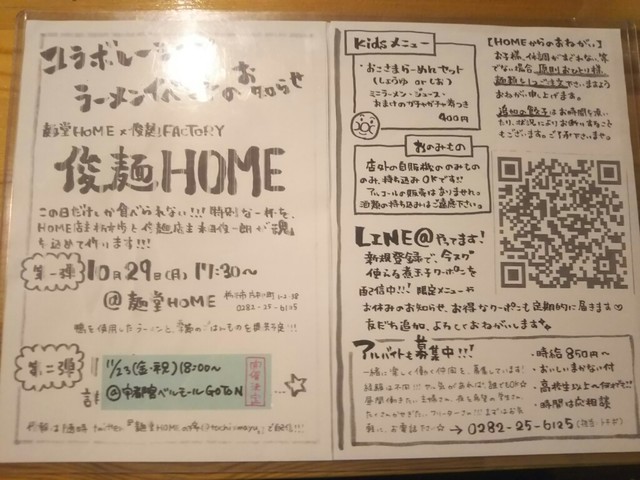 コラボレーション
ラーメンイベントのお知らせ
麺堂HOME×俊麺!FACTORY
俊麺HOME
この日だけしか食べられない!!!特別な一杯を、
HOME店主
と俊麺店主
が魂
を込めて作ります!!!
第一弾 10月29日(月) 17:30〜
@麺堂HOME
0282-25-6125
鴨を使用したラーメンと、
ごはんものを
第二弾
11/23(金・祝)18:00〜
@宇都宮ベルモールGOTON
開催決定
twitter
Kidsメニュー
・おこさまらーめんセット
(しょうゆ or しお)
ミニラーメン・ジュース・
おまけのガチャガチャ券つき
400円
おのみもの
店外の自販機ののみもの
のみ、持ち込みOKです!!
アルコールの販売はありません。
酒類の持ち込みはご遠慮下さい。
LINE@やってます!
新規登録で、今スグ
使える煮玉子クーポンを
配信中!!! 限定メニューや
お休みのお知らせ、お得なクーポンも定期的に届きます♡
友だち追加、よろしくおねがいします。
【HOMEからのおねがい】
お子様、体調がすぐれない等
でない場合、原則お1人様、
麺類を1つご注文下さいますよう
おねがい申し上げます。
追加の餃子はお時間を頂
いたり、状況によりお断りすること
もございます。ご了承下さいませ。
アルバイトも募集中!!!
一緒に楽しく働く仲間を、募集しています!
・時給850円〜
・おいしいまかない付
・高校生以上〜何才でも!!
・時間は応相談
→0282-25-6125